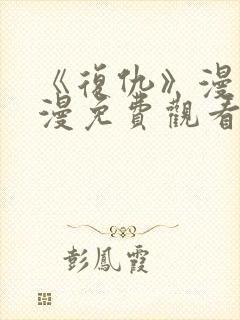 《復仇》漫
漫免費觀看
彭鳳霞